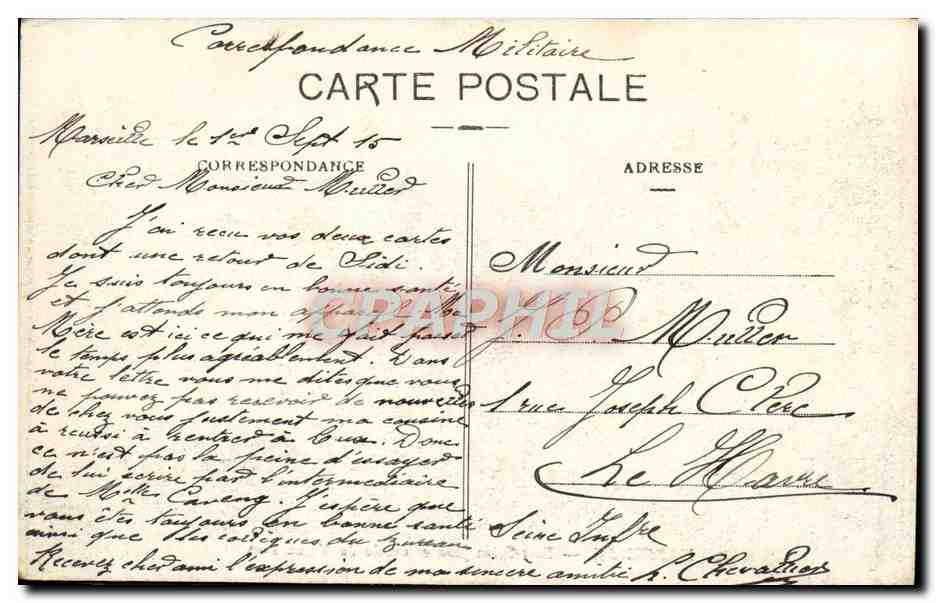 Correspondance Militaire
CARTE POSTALE
Marseille le 1er Sept 15
CORRESPONDANCE
Cher Monsieur Muller
J'ai reçu vos deux cartes
dont une retour de Sidi.
Je suis toujours en bonne santé
et j'attends mon appareil. Ma
Mère est ici ce qui me fait passer
le temps plus agréablement. Dans
votre lettre vous me dites que vous
ne pouvez pas recevoir de nouvelles
de chez vous justement ma cousine
à reussi à rentrer à Donc
ce n'est pas la peine d'essayer
de lui ecrire par l'intermediaire
de Melles J'espère que
vous êtes toujours en bonne santé
ainsi que les collègues du bureau
Recevez cher ami l'expression de ma sincère amitié L. Chevallier
ADRESSE
Monsieur
J. P. Muller
1 rue Joseph Clerc
Le Havre
Seine Infre
CPAPHIL